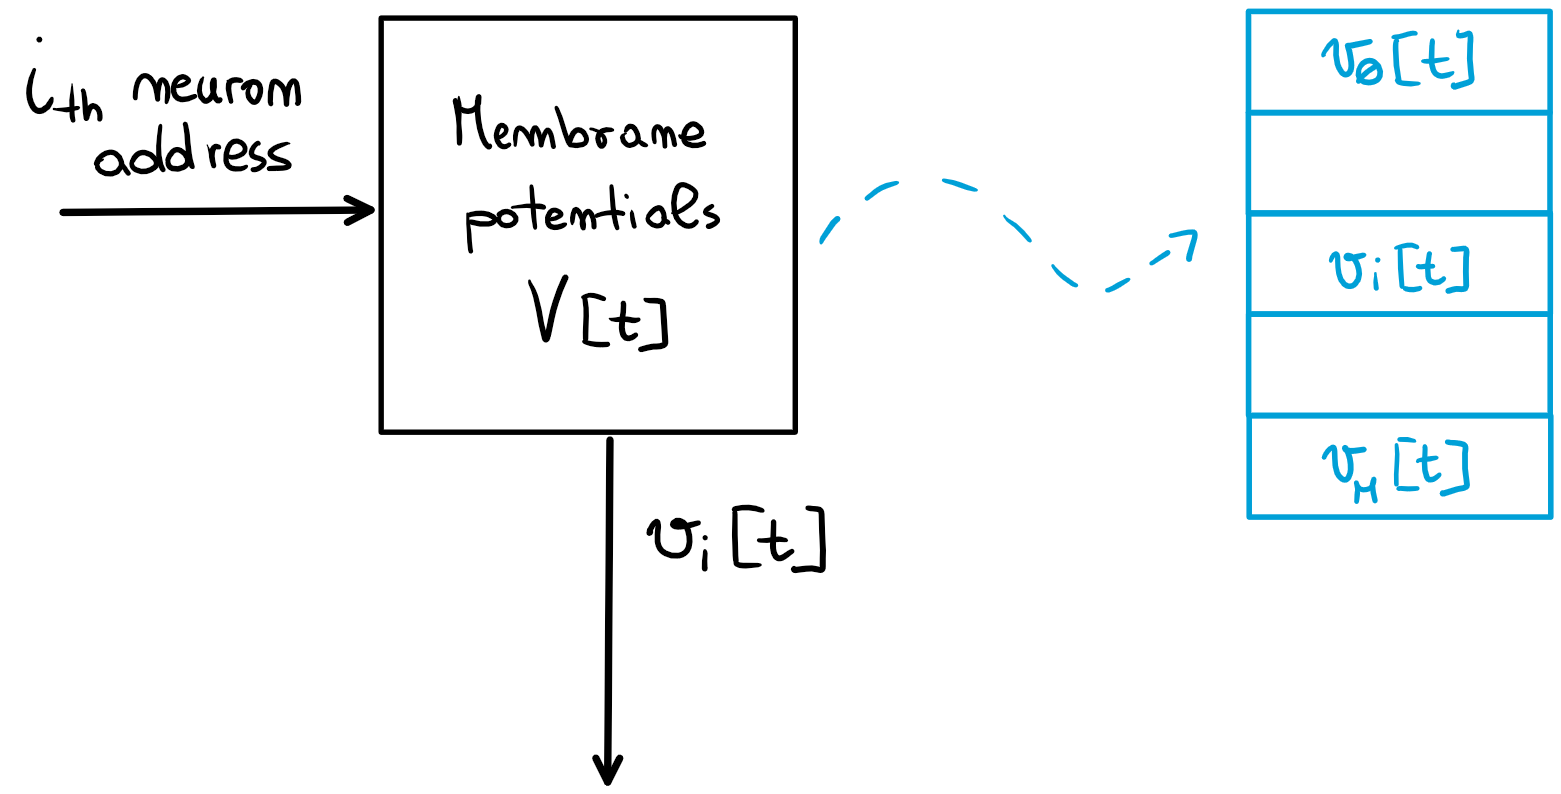 i_th neuron
address
Membrane
potentials
V[t]
v_i[t]
v_0[t]
v_i[t]
v_M[t]